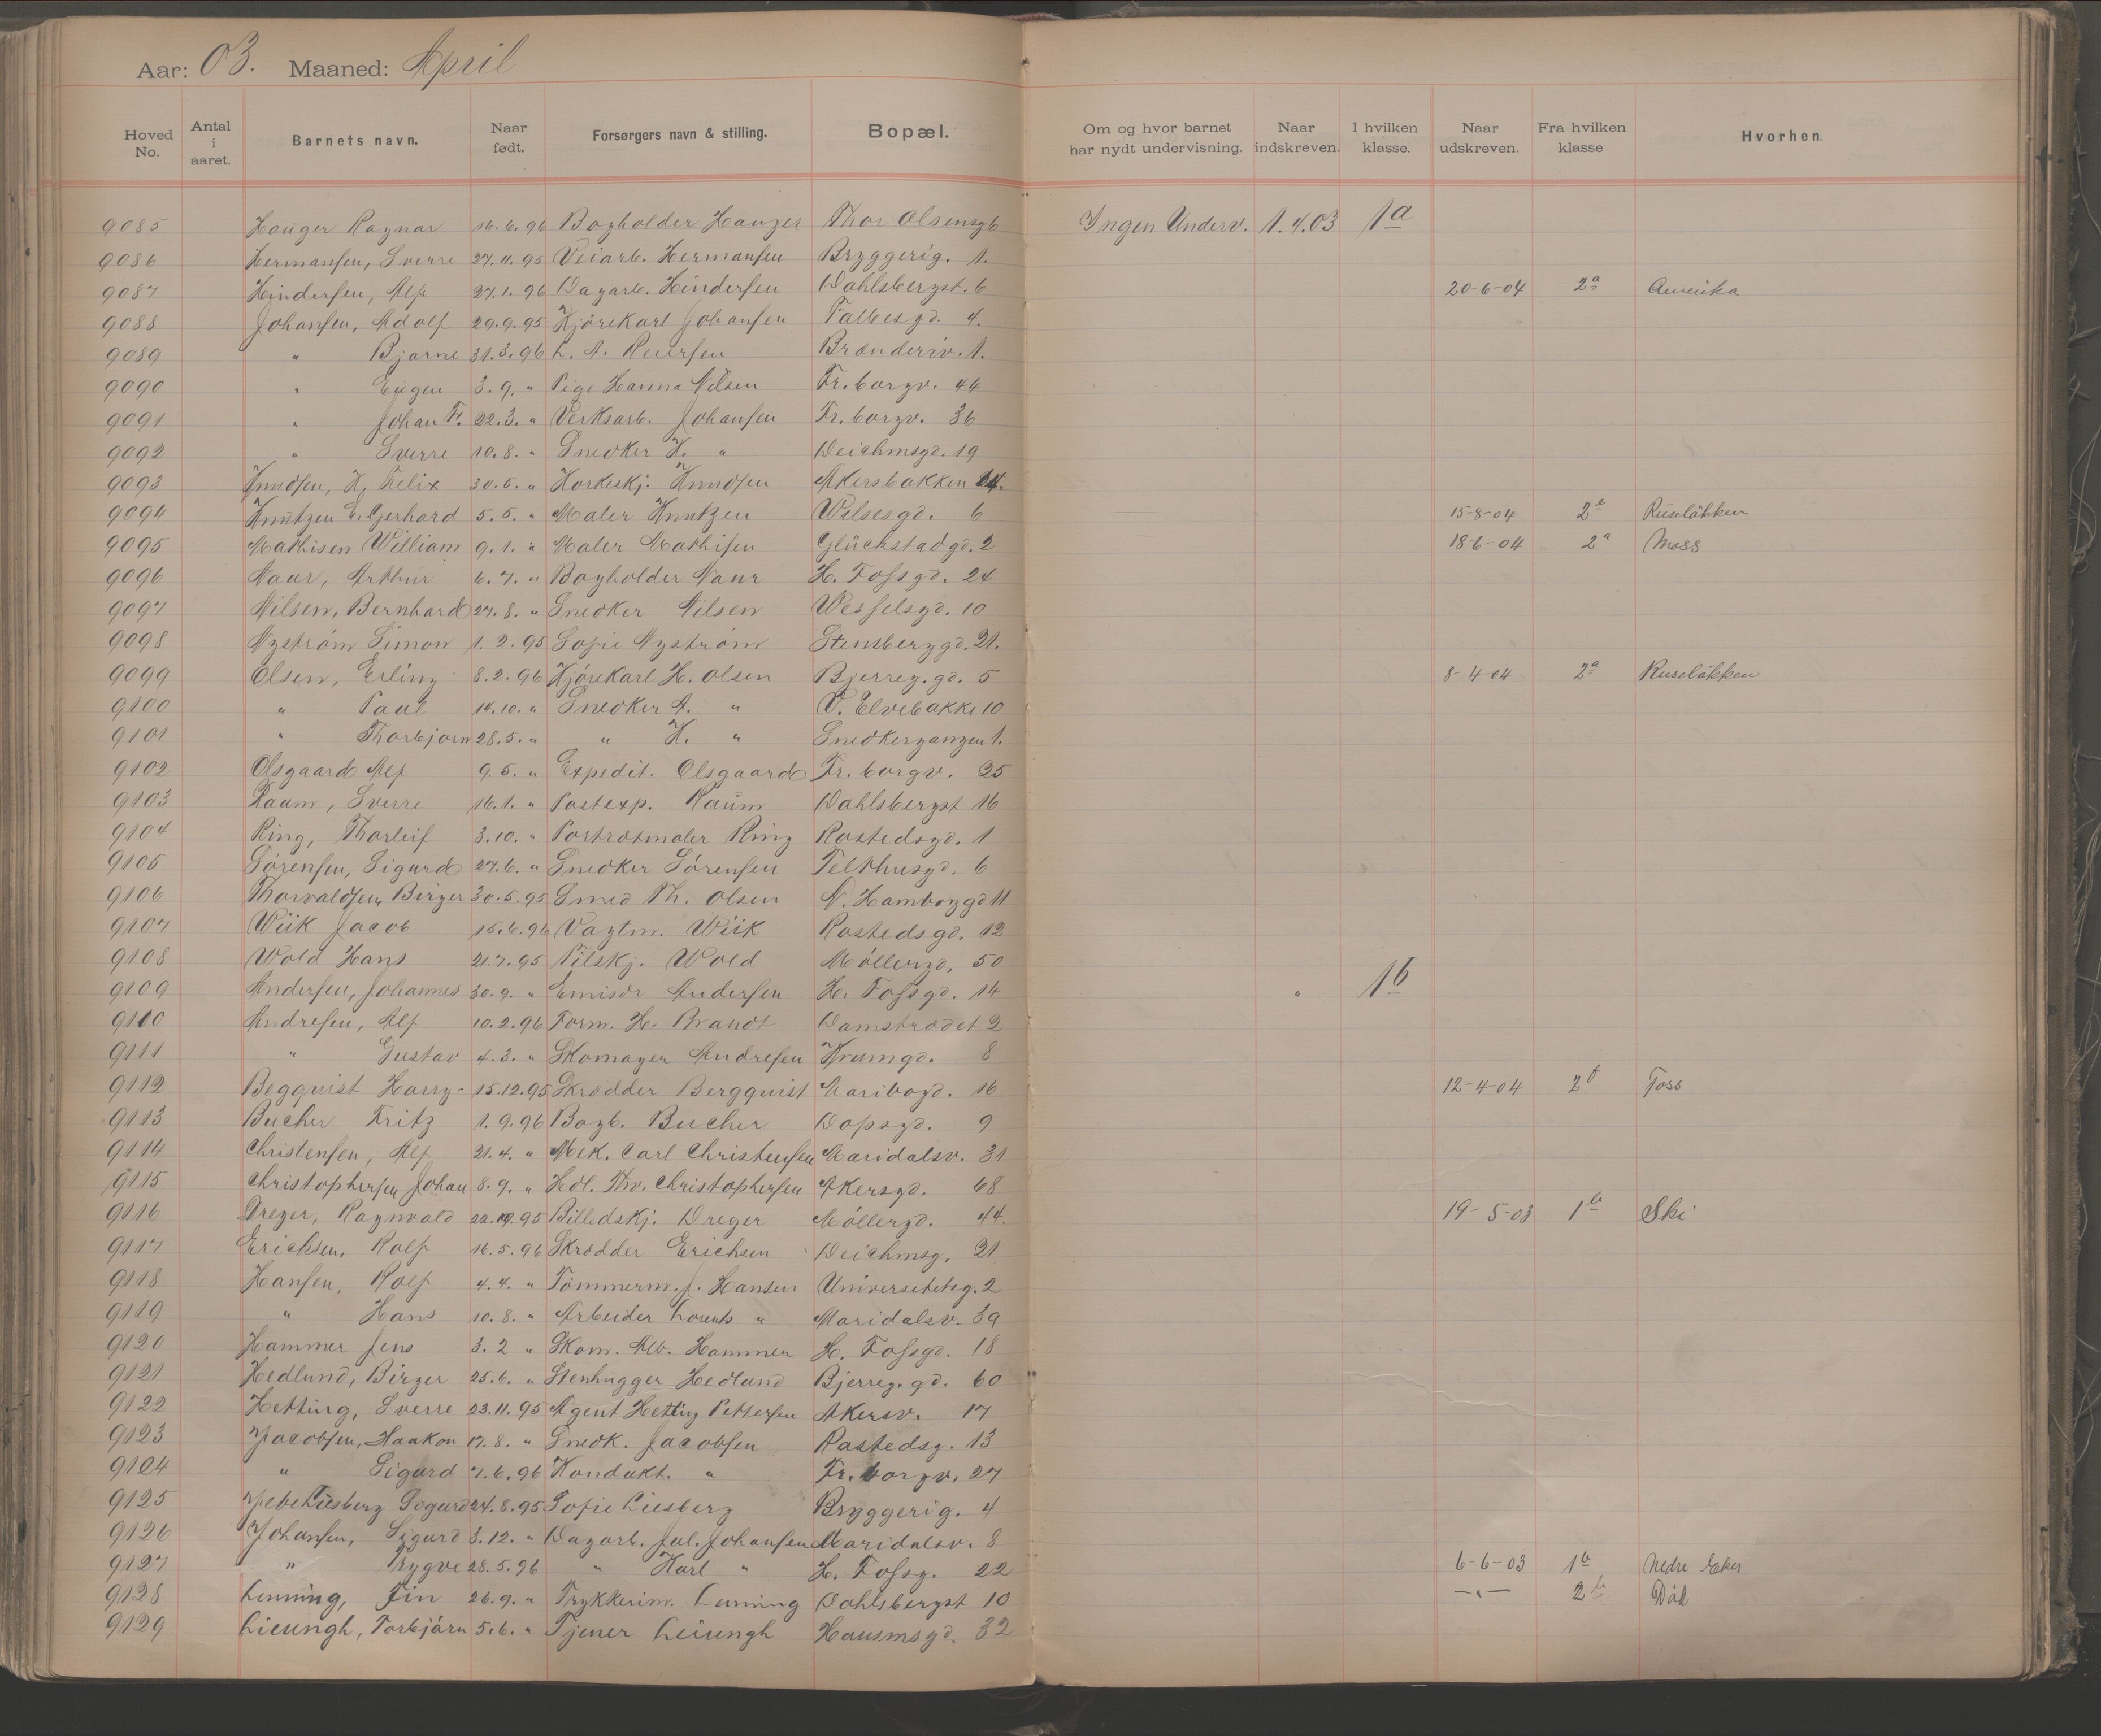 Aar: 03. Maaned: April
Hoved No. Antal i aaret. Barnets navn. Naar født. Forsørgers navn & stilling. Bopæl. Om og hvor barnet har nydt undervisning. Naar indskreven. I hvilken klasse. Naar udskreven. Fra hvilken klasse Hvorhen.
9085 Hauger Ragnar 16.6.96 Bogholder Hauger Thor Olsensg 6 Ingen Underv. 1.4.03 1a
9086 Hermansen, Sverre 27.11.95 Veiarb. Hermansen Bryggerig. 1.
9087 Hindersen, Alf 27.1.96 Dagarb. Hindersen Dahlsbergst. 6 20-6-04 2a Amerika
9088 Johansen, Adolf 29.9.95 Kjørekarl Johansen Falbesgd. 4.
9089 " Bjarne 31.3.96 L. A. Reiersen Brenneriv. 1.
9090 " Eugen 3.9. " Pige Hanna Nilsen Fr.borgv. 44
9091 " Johan F. 22.3. " Verksarb. Johansen Fr.borgv. 36
9092 " Sverre 10.8. " Snedker K. " Deichmsgd. 19
9093 Knudsen, K. Felix 30.5. " Korkeskj. Knudsen Akersbakken 24.
9094 Knutzen E. Gerhard 5.5. " Maler Knutzen Wilsesgd. 6 15-8-04 2b Ruseløkken
9095 Mathisen William 9.1. " Maler Mathisen Glückstadgd. 2 18-6-04 2a Moss
9096 Naur, Arthur 6.7. " Bogholder Naur H. Fossgd. 24
9097 Nilsen, Bernhard 27.8. " Snedker Nilsen Wesselsgd. 10
9098 Nystrøm Simon 1.2.95 Sofie Nystrøm Stensberggd. 21.
9099 Olsen, Erling 8.2.96 Kjørekarl H. Olsen Bjerreg.gd. 5 8-4-04 2a Ruseløkken
9100 " Paul 14.10. " Snedker A. " V. Elvebakke 10
9101 " Thorbjørn 28.5. " " K. " Snedkergangen 1.
9102 Olsgaard Alf 9.5. " Expedit. Olsgaard Fr.borgv. 25
9103 Raum, Sverre 16.1. " Postexp. Raum Dahlsbergst 16
9104 Ring, Thorleif 3.10. " Portrætmaler Ring Rostedsgd. 1
9105 Sørensen, Sigurd 27.6. " Snedker Sørensen Telthusgd. 6
9106 Thorvaldsen, Birger 30.5.95 Smed Th. Olsen N. Hambroggd 11
9107 Wiik Jacob 15.6.96 Vagtm. Wiik Rostedsgd. 12
9108 Wold Hans 21.7.95 Pølskj. Wold Møllergd. 50
9109 Andersen, Johannes 30.9. " Emisær Andersen H. Fossgd. 14 " 1b
9110 Andresen, Alf 10.2.96 Form. H. Brandt Damstrædet 2
9111 " Gustav 4.3. " Skomager Andresen Krumgd. 8
9112 Begqvist Harry- 15.12.95 Skrædder Bergqvist Maribogd. 16 12-4-04 2b Foss
9113 Bucher Fritz 1.9.96 Bogb. Bucher Dopsgd. 9
9114 Christensen, Alf 21.4. " Mek. Carl Christensen Maridalsv. 31
9115 Christophersen Johan 8.9. " Hdl. Thv. Christophersen Akersgd. 68
9116 Dreger, Ragnvald 22.12.95 Billedskj. Dreger Møllergd. 44. 19-5-03 1b Ski
9117 Erichsen, Rolf 16.5.96 Skrædder Erichsen Deichmsg. 21
9118 Hansen, Rolf 4.4. " Tømmerm. J. Hansen Universitetsg. 2
9119 " Hans 10.8. " Arbeider Lorents " Maridalsv. 39
9120 Hammer Jens 3.2 " Skom. Alb. Hammer H. Fossgd. 18
9121 Hedlund, Birger 25.6. " Stenhugger Hedlund Bjerreg.gd. 60
9122 Hetting, Sverre 23.11.95 Agent Hetting Pettersen Akersv. 17
9123 Jacobsen, Haakon 17.8. " Snedk. Jacobsen Rostedsg. 13
9124 " Sigurd 7.6.96 Kondukt. " Fr.borgv. 27
9125 Liesberg Sogurd 24.8.95 Sofie Liesberg Bryggerig. 4
9126 Johansen, Sigurd 3.12. " Dagarb. Jul. Johansen Maridalsv. 8
9127 " Trygve 28.5.96 " Karl " H. Fossg. 22 6-6-03 1b Nedre Eker
9128 Lenning, Fin 26.9. " Trykkerim. Lenning Dahlsbergst 10 -"- 2b
9129 Lieungh, Torbjørn 5.6. " Tjener Lieungh Hausmsgd. 32